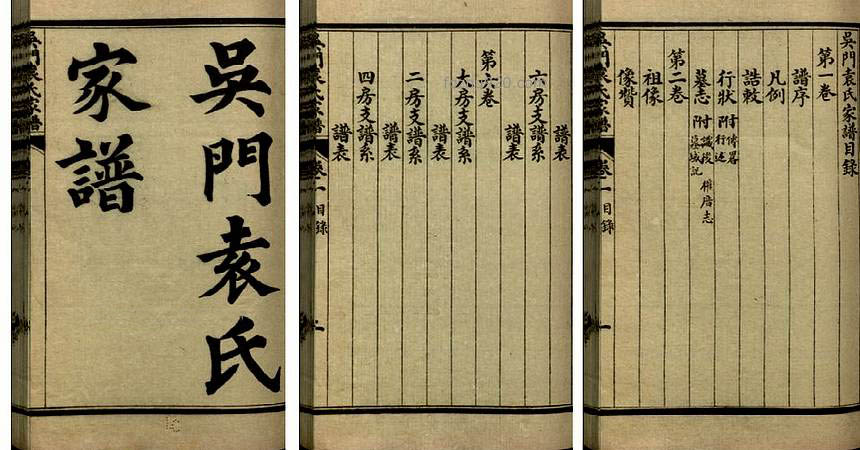 吳門袁氏
家譜
吳門袁氏家譜
卷一
目錄
譜表
六房支譜系
譜表
第六卷
大房支譜系
譜表
二房支譜系
譜表
四房支譜系
譜表
吳門袁氏家譜
卷一
目錄
吳門袁氏家譜目錄
第一卷
譜序
凡例
誥敕
行狀 附 傳畧 行述
墓志 附 誌 墓域記
第二卷
祖像
像贊
吳門袁氏家譜
卷一
目錄
一